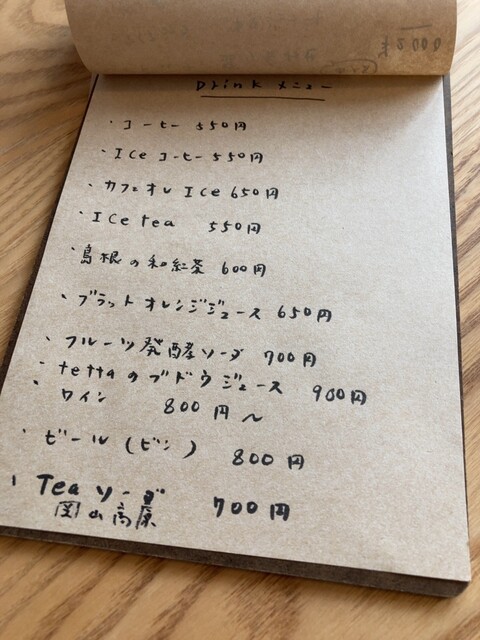 Drink メニュー
・コーヒー 550円
・Ice コーヒー 550円
・カフェオレ Ice 650円
・Ice tea 550円
・島根の和紅茶 600円
・ブラットオレンジジュース 650円
・フルーツ発酵ソーダ 700円
・tettaのブドウジュース 900円
・ワイン 800円〜
・ビール(ビン) 800円
・Tea ソーダ 700円
岡山高原